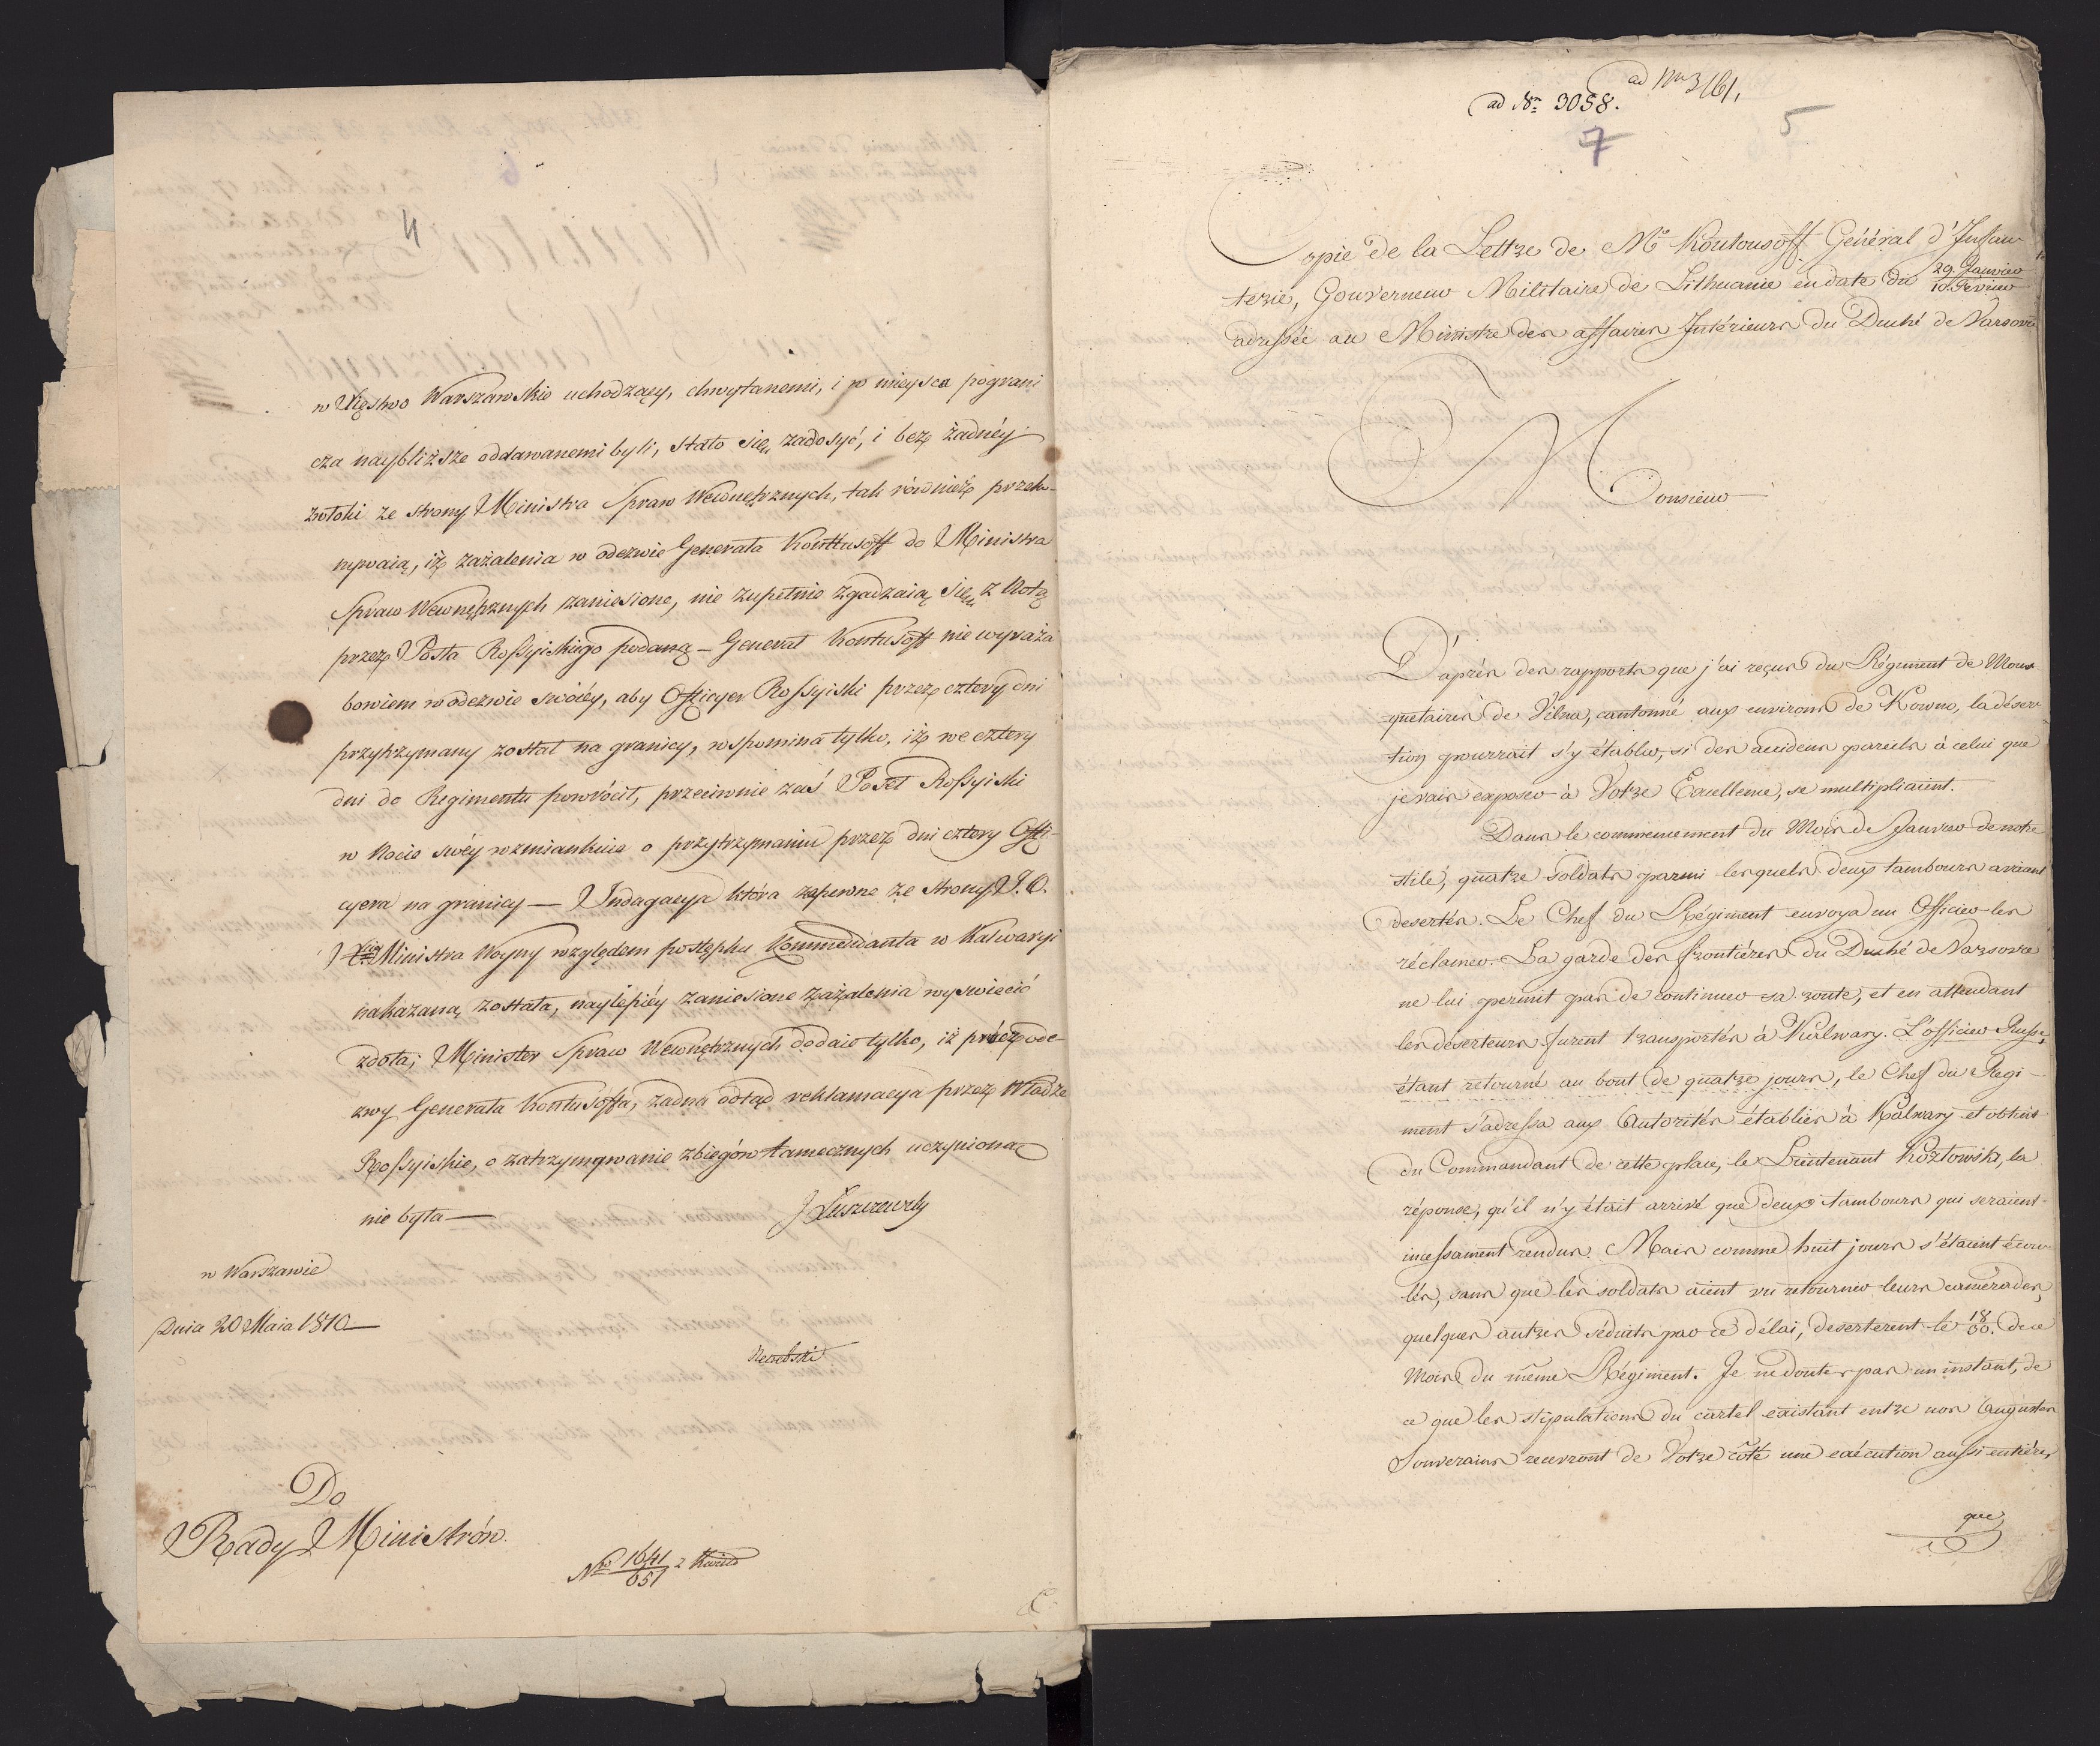 4
w Xięstwo Warszawskie uchodzący, chwytanemi, i w mieysca pograni
cza naybliższe oddawanemi byli, stało się zadosyć, i bez żadnéy
zwłoki ze strony Ministra Spraw Wewnętrznych, tak również przeko-
nywaią, iż zażalenia w odezwie Generała Kouttusoff do Ministra
Spraw Wewnętrznych zaniesione, nie zupełnie zgadzaią się z Notą
przez Posła Rossyiskiego podaną – Generał Koutusoff nie wyraża
bowiem w odezwie swoiéy, aby Officyer Rossyiski przez cztery dni
przytrzymany został na granicy, wspomina tylko, iż we cztery
dni do Regimentu powrócił, przeciwnie zaś Poseł Rossyiski
w Nocie swéy wzmiankuie o przytrzymaniu przez dni cztery Offi-
cyera na granicy — Indagacya która zapewne ze strony J.O.
Xię Ministra Woyny względem postępku Kommendanta w Kalwaryi
nakazaną została, naylepiéy zaniesione zażalenia wyswiecić
zdoła; Minister Spraw Wewnętrznych dodaie tylko, iż prócz ode-
zwy Generała Koutusoffa, żadna dotąd reklamacya przez Władze
Rossyiskie, o zatrzymywanie zbiegów tamecznych uczyniona
nie była —
J Łuszczewski
w Warszawie
Dnia 20 Maia 1810 —
Do
Rady Ministrów.
No 1641/651 z
ad Nro 3161,
ad No 3058.
7
5
Copie de la Lettre de Mr Koutousoff Général d'Infan-
terie, Gouverneur Militaire de Lithuanie en date du 29. Janvier/10. Fevrier
adressée au Ministre des affaires Intérieurs du Duché de Varsovie
Monsieur
D'après des rapports que j'ai reçus du Régiment de Mous
quetaires de Vilna, cantonné aux environs de Kowno, la déser-
tion pourrait s'y établir, si des accidens pareils à celui que
je vais exposer à Votre Excellence, se multipliaient.
Dans le commencement du Mois de Janvier de notre
stile, quatre soldats parmi lesquels deux tambours avaient
desertés. Le Chef du Régiment envoya un Officier les
réclamer. La garde des frontières du Duché de Varsovie
ne lui permit pas de continuer sa route, et en attendant
les déserteurs furent transportés à Kalwary. L'officier Russe,
étant retourné au bout de quatre jours, le Chef du Regi-
ment s'adressa aux Autorités établies à Kalwary et obtint
du Commandant de cette place, le Lieutenant Kozłowski, la
réponse, qu'il n'y était arrivé que deux tambours qui seraient
incessament rendus. Mais comme huit jours s'étaient écou-
lés, sans que les soldats aient vu retourner leurs camérades,
quelques autres séduits par ce délai, deserterent le 18/30. de ce
Mois du même Régiment. Je ne doute pas un instant, de
ce que les stipulations du cartel existant entre nos Augustes
Souverains recevront de Votre côté une exécution aussi entière,
que